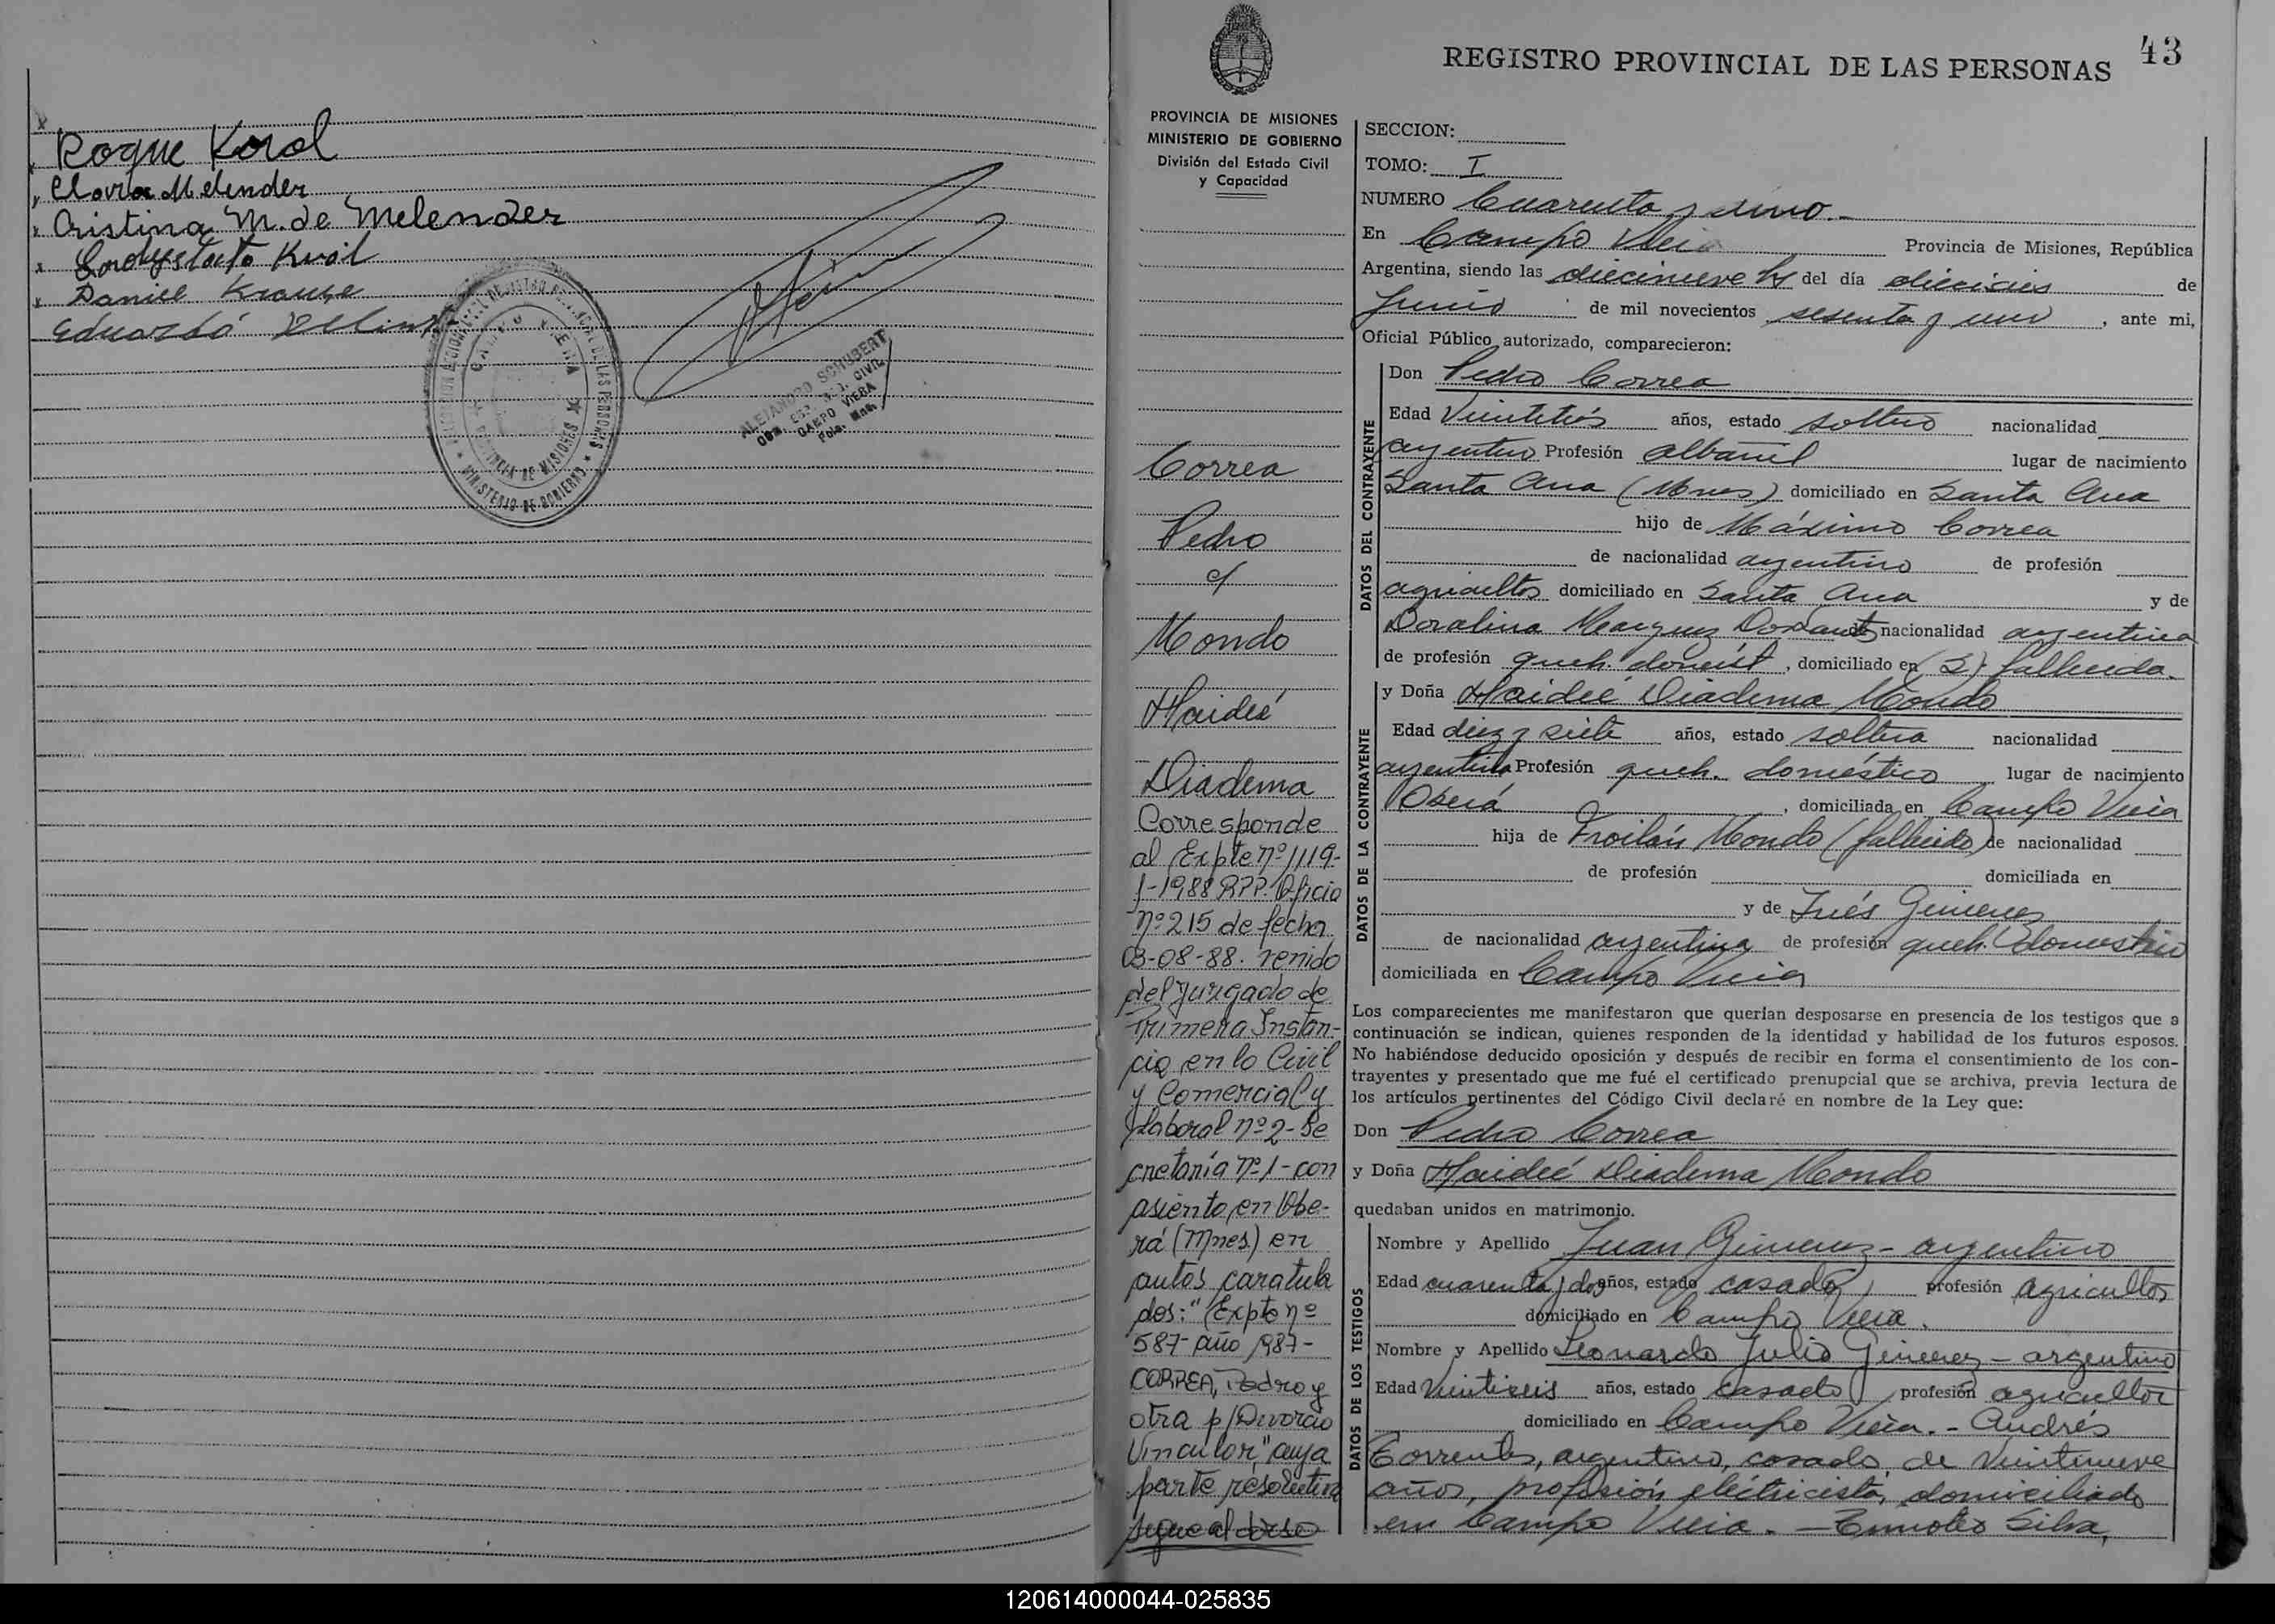 Roque Korol
Clovia Melender
Cristina M. de Melender
Korol
Daniel Krause
Eduardo
DELEGACION REGISTRO PROVINCIAL DE LAS PERSONAS
CAMPO VIERA
PROVINCIA DE MISIONES
MINISTERIO DE GOBIERNO
ALEJANDRO SCHUBERT
CIVIL
CAMPO VIERA
Pcia. Mnes.
43
REGISTRO PROVINCIAL DE LAS PERSONAS
PROVINCIA DE MISIONES
MINISTERIO DE GOBIERNO
División del Estado Civil
y Capacidad
Correa
Pedro
c/
Mondo
Haideé
Diadema
Corresponde
al Expte nº 1119-
J-1988 RPP. Oficio
nº 215 de fecha
03-08-88. venido
del Juzgado de
Primera Instan-
cia en lo Civil
y Comercial y
Laboral nº 2- Se
cretaría nº 1- con
asiento en Obe-
rá (Mnes) en
autos caratula
dos: "Expte nº
587- año 1987-
CORREA, Pedro y
otra p/Divorcio
Vincular" cuya
parte resolutiva
sigue al dorso
SECCION:
TOMO: I
NUMERO Cuarenta y uno.-
En Campo Viera Provincia de Misiones, República
Argentina, siendo las diecinueve hs del día dieciseis de
Junio de mil novecientos sesenta y uno, ante mi,
Oficial Público autorizado, comparecieron:
DATOS DEL CONTRAYENTE
Don Pedro Correa
Edad Veintitrés años, estado soltero nacionalidad
argentino Profesión albañil lugar de nacimiento
Santa Ana (Mnes) domiciliado en Santa Ana
hijo de Máximo Correa
de nacionalidad argentino de profesión
agricultor domiciliado en Santa Ana y de
Doralina Marquez nacionalidad argentina
de profesión queh. domést, domiciliado en fallecida.
DATOS DE LA CONTRAYENTE
y Doña Haideé Diadema Mondo
Edad diez y siete años, estado soltera nacionalidad
argentina Profesión queh. doméstico lugar de nacimiento
Oberá, domiciliada en Campo Viera
hija de Froilán Mondo (fallecido) de nacionalidad
de profesión domiciliada en
y de Inés Gimenez
de nacionalidad argentina de profesión queh. doméstico
domiciliada en Campo Viera
Los comparecientes me manifestaron que querían desposarse en presencia de los testigos que a
continuación se indican, quienes responden de la identidad y habilidad de los futuros esposos.
No habiéndose deducido oposición y después de recibir en forma el consentimiento de los con-
trayentes y presentado que me fué el certificado prenupcial que se archiva, previa lectura de
los artículos pertinentes del Código Civil declaré en nombre de la Ley que:
Don Pedro Correa
y Doña Haideé Diadema Mondo
quedaban unidos en matrimonio.
DATOS DE LOS TESTIGOS
Nombre y Apellido Juan Gimenez - argentino
Edad cuarenta y dos años, estado casado profesión agricultor
domiciliado en Campo Viera.
Nombre y Apellido Leonardo Julio Gimenez - argentino
Edad Veintiseis años, estado casado, profesión agricultor
domiciliado en Campo Viera. - Andrés
Correntes, argentino, casado, de Veintinueve
años, profesión eléctricista, domiciliado
en Campo Viera. - Silva,
120614000044-025835